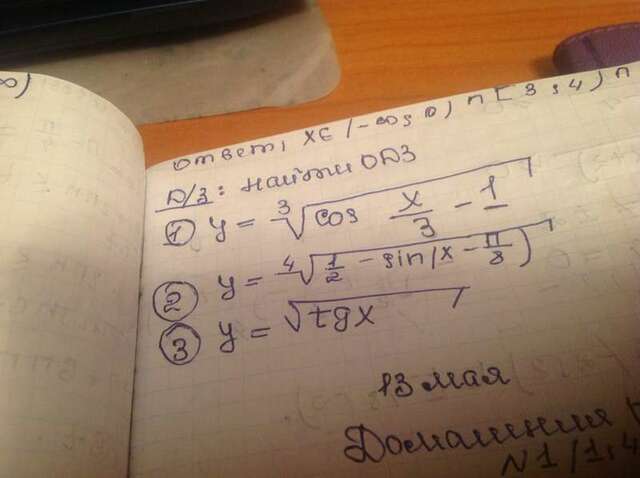 ∞)
ответ, x∈(-∞; 0) ∩ [3; 4) ∩
D/З: найти ОДЗ
① y = ∛(cos x/3 - 1)
② y = ∜(1/2 - sin(x - π/8))
③ y = √(tgx)
13 мая
Домашния
N1/1,4